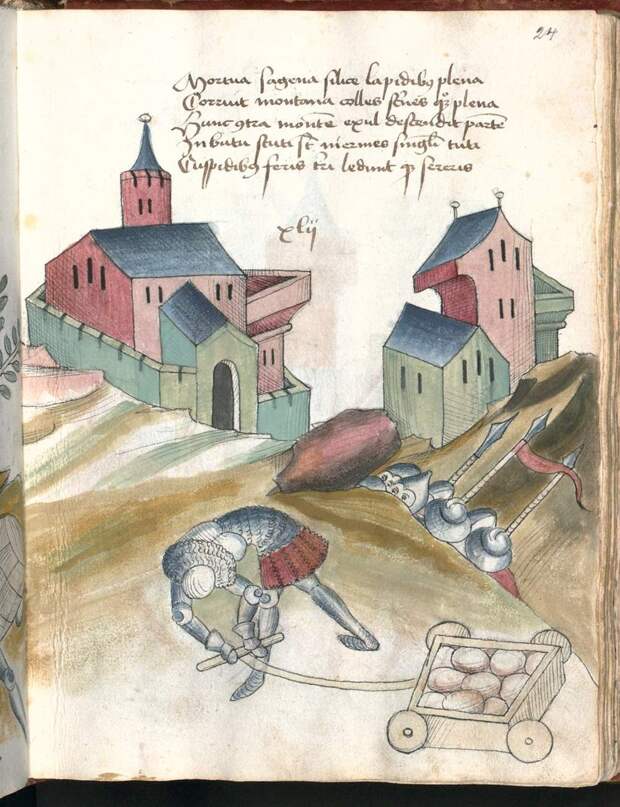 24
Mortua sagena silice lapidibꝫ plena
Corruit montana colles sternes qꝫ plena
Hunc ꝯtra montē exul descendit partē
In butu scuti st̄ inermes singlī tuti
Cuspidibꝫ feris ledunt
xlij